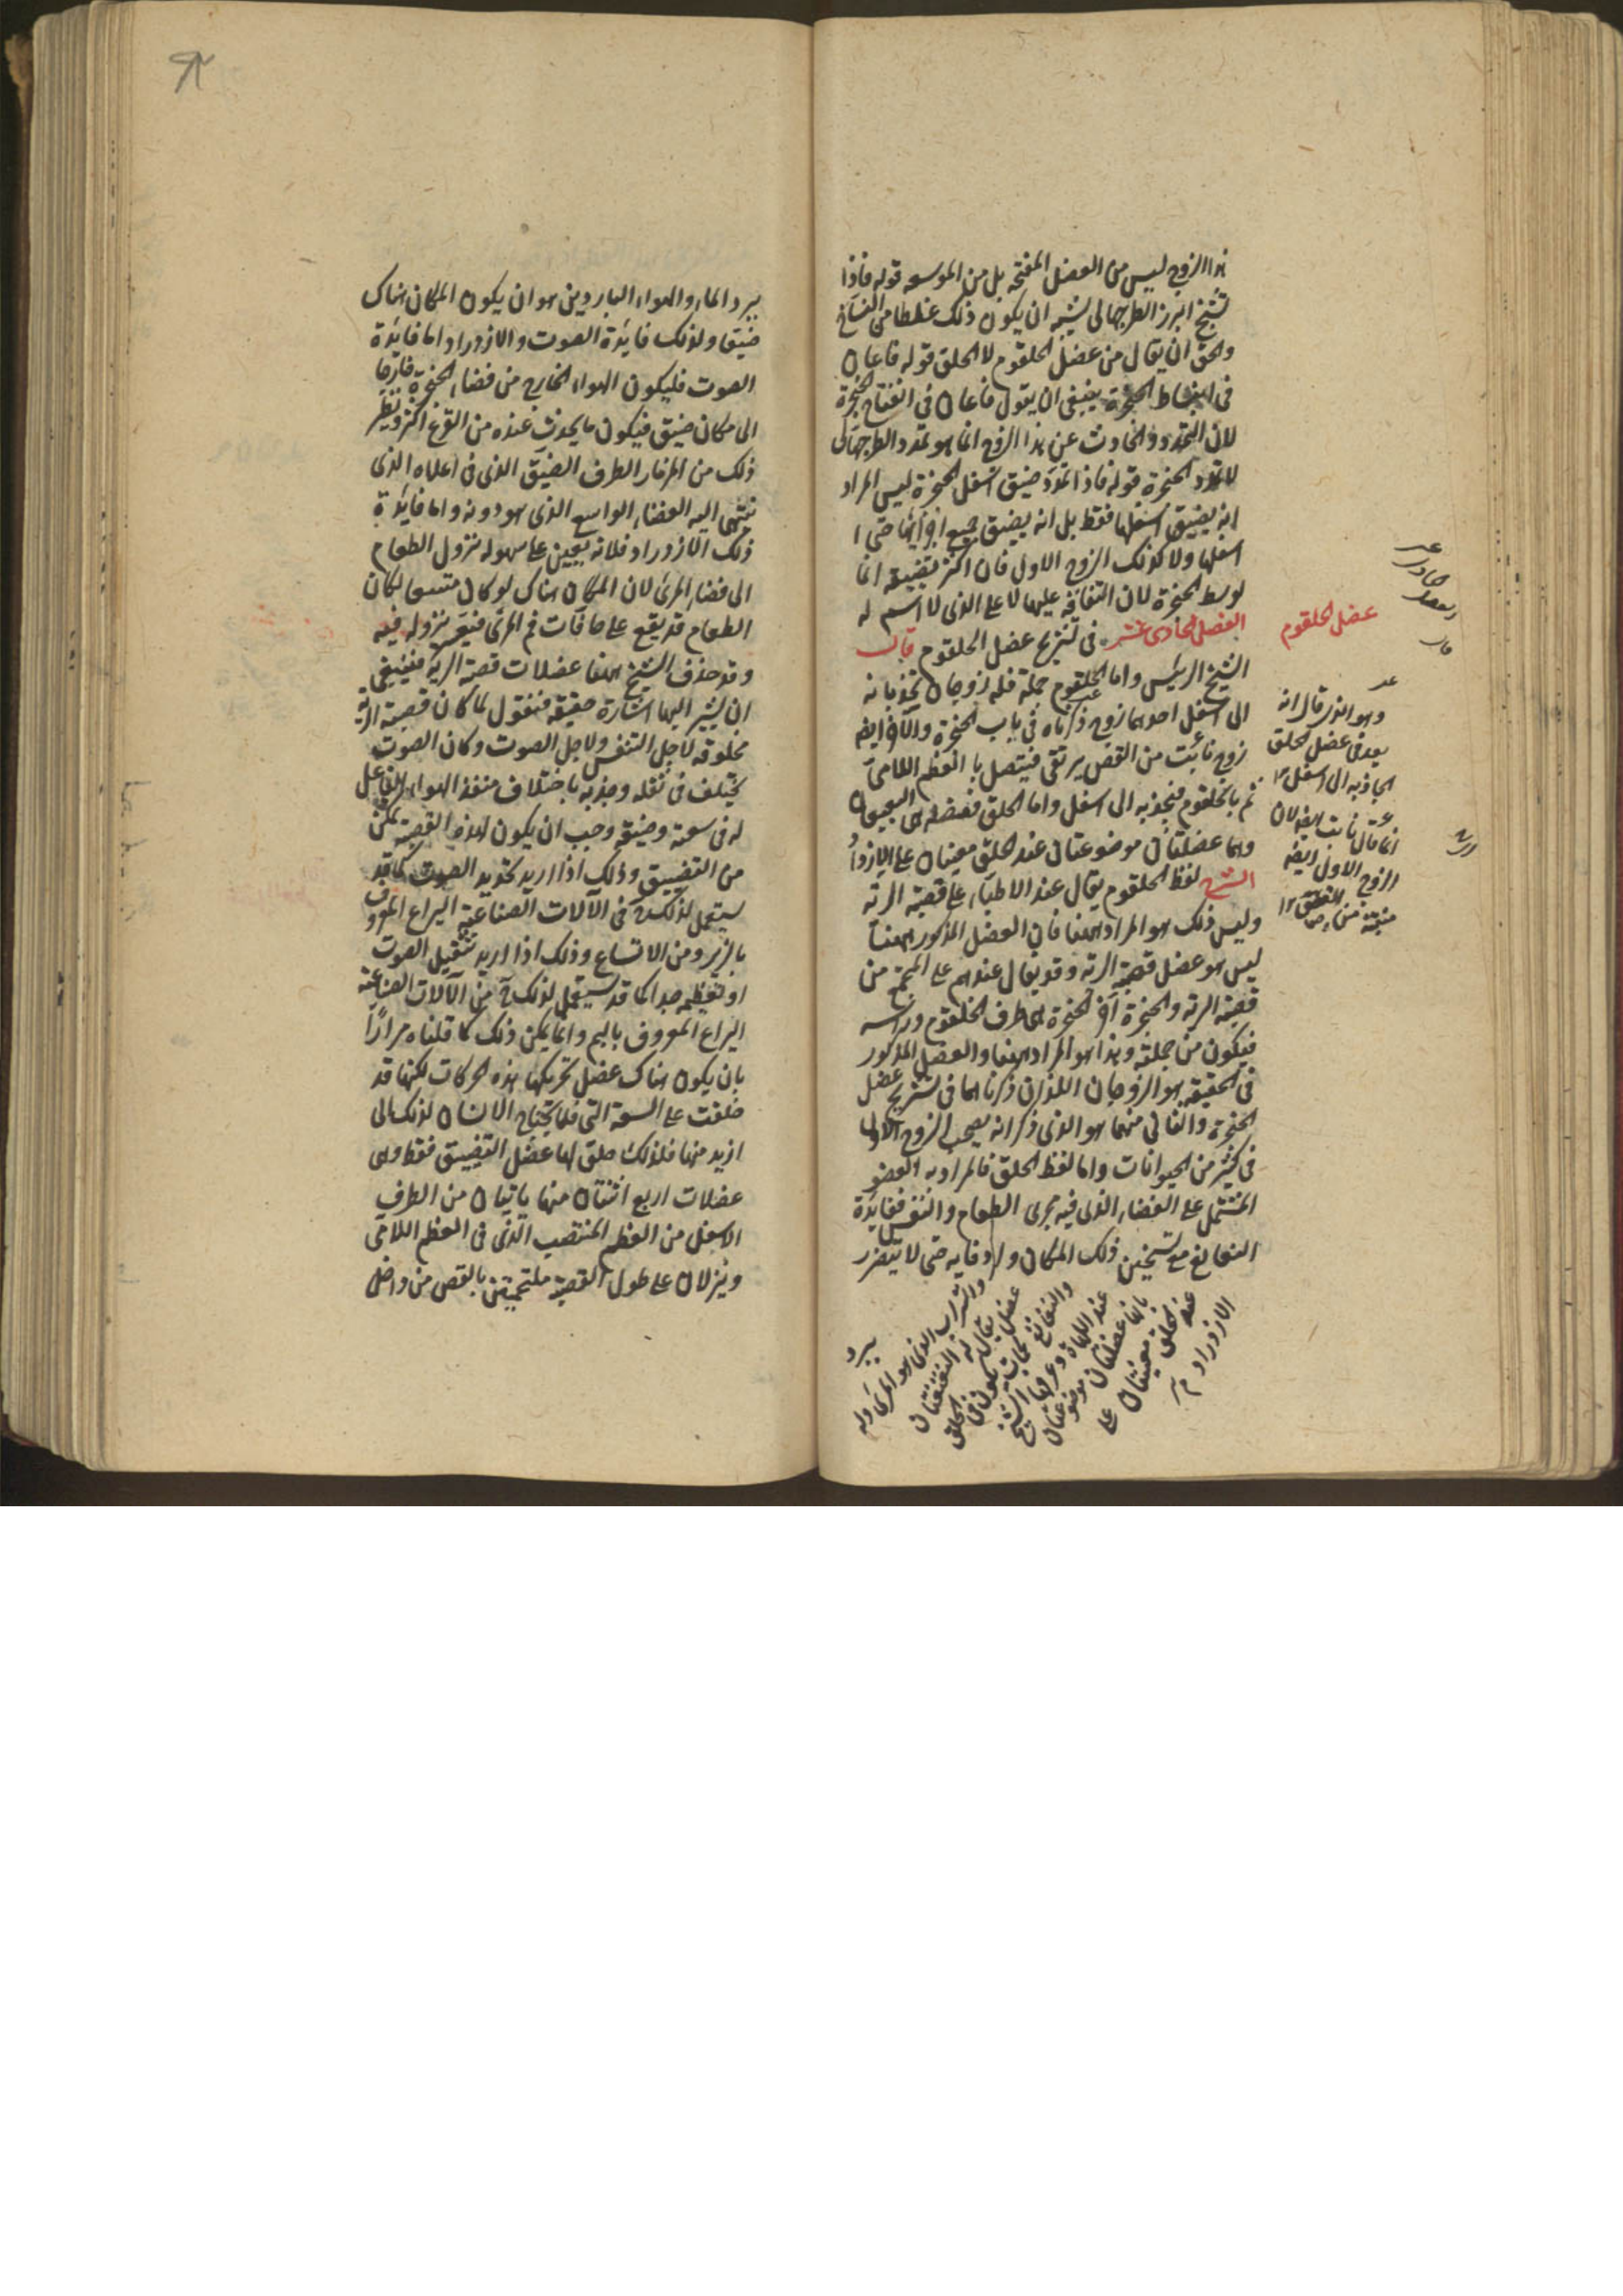 هذا الزوج ليس من العضل المفتحة بل من الموسعه قوله فاذا
تشنج ابرز الطرجهالى يشبه ان يكون ذلك غلطا من النساخ
والحق ان يقال من عضل الحلقوم لا الحلق قوله فاعان
فى انبساط الحنجرة ينبغى ان يقول فاعان فى انفتاح الحنجرة
لان التمدد والحادث عن هذا الزوج انما هو تمدد الطرجهالى
لا تمدد الحنجرة قوله فاذا تمدد ضيق اسفل الحنجرة ليس المراد
انه يضيق اسفلها فقط بل انه يضيق جميع اجزائها حتى
اسفلها ولا كذلك الزوج الاول فان اكثر تضييقه انما
لوسط الحنجرة لان التفافه عليها لا على الذى لا اسم له
الفصل الحادى عشر فى تشريح عضل الحلقوم قال
عضل الحلقوم
الشيخ الرئيس واما الحلقوم جملة فله زوجان يجذبانه
الى اسفل احدهما زوج ذكرناه فى باب الحنجرة والآخر ايضا
زوج نابت من القص يرتقى فيتصل بالعظم اللامى
ثم بالحلقوم فيجذبه الى اسفل واما الحلق فعضله هى
وهما عضلتان موضوعتان عند الحلق معينان على الازدراد
الشرح لفظ الحلقوم يقال عند الاطباء على قصبة الرئة
وليس ذلك هو المراد ههنا فان العضل المذكور ههنا
ليس هو عضل قصبة الرئة وقد يقال عندهم على المجتمع من
قصبة الرئة والحنجرة اذ الحنجرة هى طرف الحلقوم ورأسه
فيكون من جملته وهذا هو المراد ههنا والعضل المذكور
فى الحقيقة هو الزوجان اللذان ذكرناهما فى تشريح عضل
الحنجرة والثانى منهما هو الذى ذكر انه يصحب الزوج الاول
فى كثير من الحيوانات واما لفظ الحلق فالمراد به العضو
المشتمل على الفضاء الذى فيه مجرى الطعام والنفس ففايدة
النغانغ مع تسخين ذلك المكان وادفايه حتى لا يتضرر
وهو الذى قال انه
يعد فى عضل الحلق
الجاذبه الى اسفل
انما قال نابت ايضا لان
الزوج الاول ايضا
منبته من القص
عند الحلق معينتان على
الازدراد
يبرد
يبرد الماء والهواء الباردين هو ان يكون المكان هناك
ضيقا ولذلك فايدة الصوت والازدراد اما فايدة
الصوت فليكون الهواء الخارج من فضاء الحنجرة خارجا
الى مكان ضيق فيكون ما يحدث عنده من القرع اكثر ونظير
ذلك من المزمار الطرف الضيق الذى فى اعلاه الذى
ينتهى اليه الفضاء الواسع الذى هو دونه واما فايدة
ذلك الازدراد فلانه يعين على سهولة نزول الطعام
الى فضاء المرئ لان المكان هناك لو كان متسعا لكان
الطعام قد يقع على حافات فم المرئ فيتعسر نزوله فيه
وقد حذف الشيخ ههنا عضلات قصبة الرية فينبغى
ان نشير اليها اشارة خفيفة فنقول لما كان قصبة الرية
مخلوقة لاجل التنفس ولاجل الصوت وكان الصوت
يختلف فى ثقله وحدته باختلاف منفذ الهواء الفاعل
له فى سعته وضيقه وجب ان يكون لهذه القصبة تمكن
من التضييق وذلك اذا اريد تحديد الصوت كما قد
يستعمل لذلك فى الآلات الصناعية اليراع المعروف
بالزير ومن الاتساع وذلك اذا اريد تثقيل الصوت
او تعظيمه جدا كما قد يستعمل لذلك من الآلات الصناعية
اليراع المعروف بالبم وانما يمكن ذلك كما قلناه مرارًا
بان يكون هناك عضل تحريكها هذه الحركات لكنها قد
خلقت على السعة التى قلما يحتاج الانسان لذلك الى
ازيد منها فلذلك خلق لها عضل التضييق فقط وهى
عضلات اربع اثنتان منها ياتيان من الطرف
الاسفل من العظم المنتصب الذى فى العظم اللامى
وينزلان على طول القصبة ملتحمتين بالقص من داخل